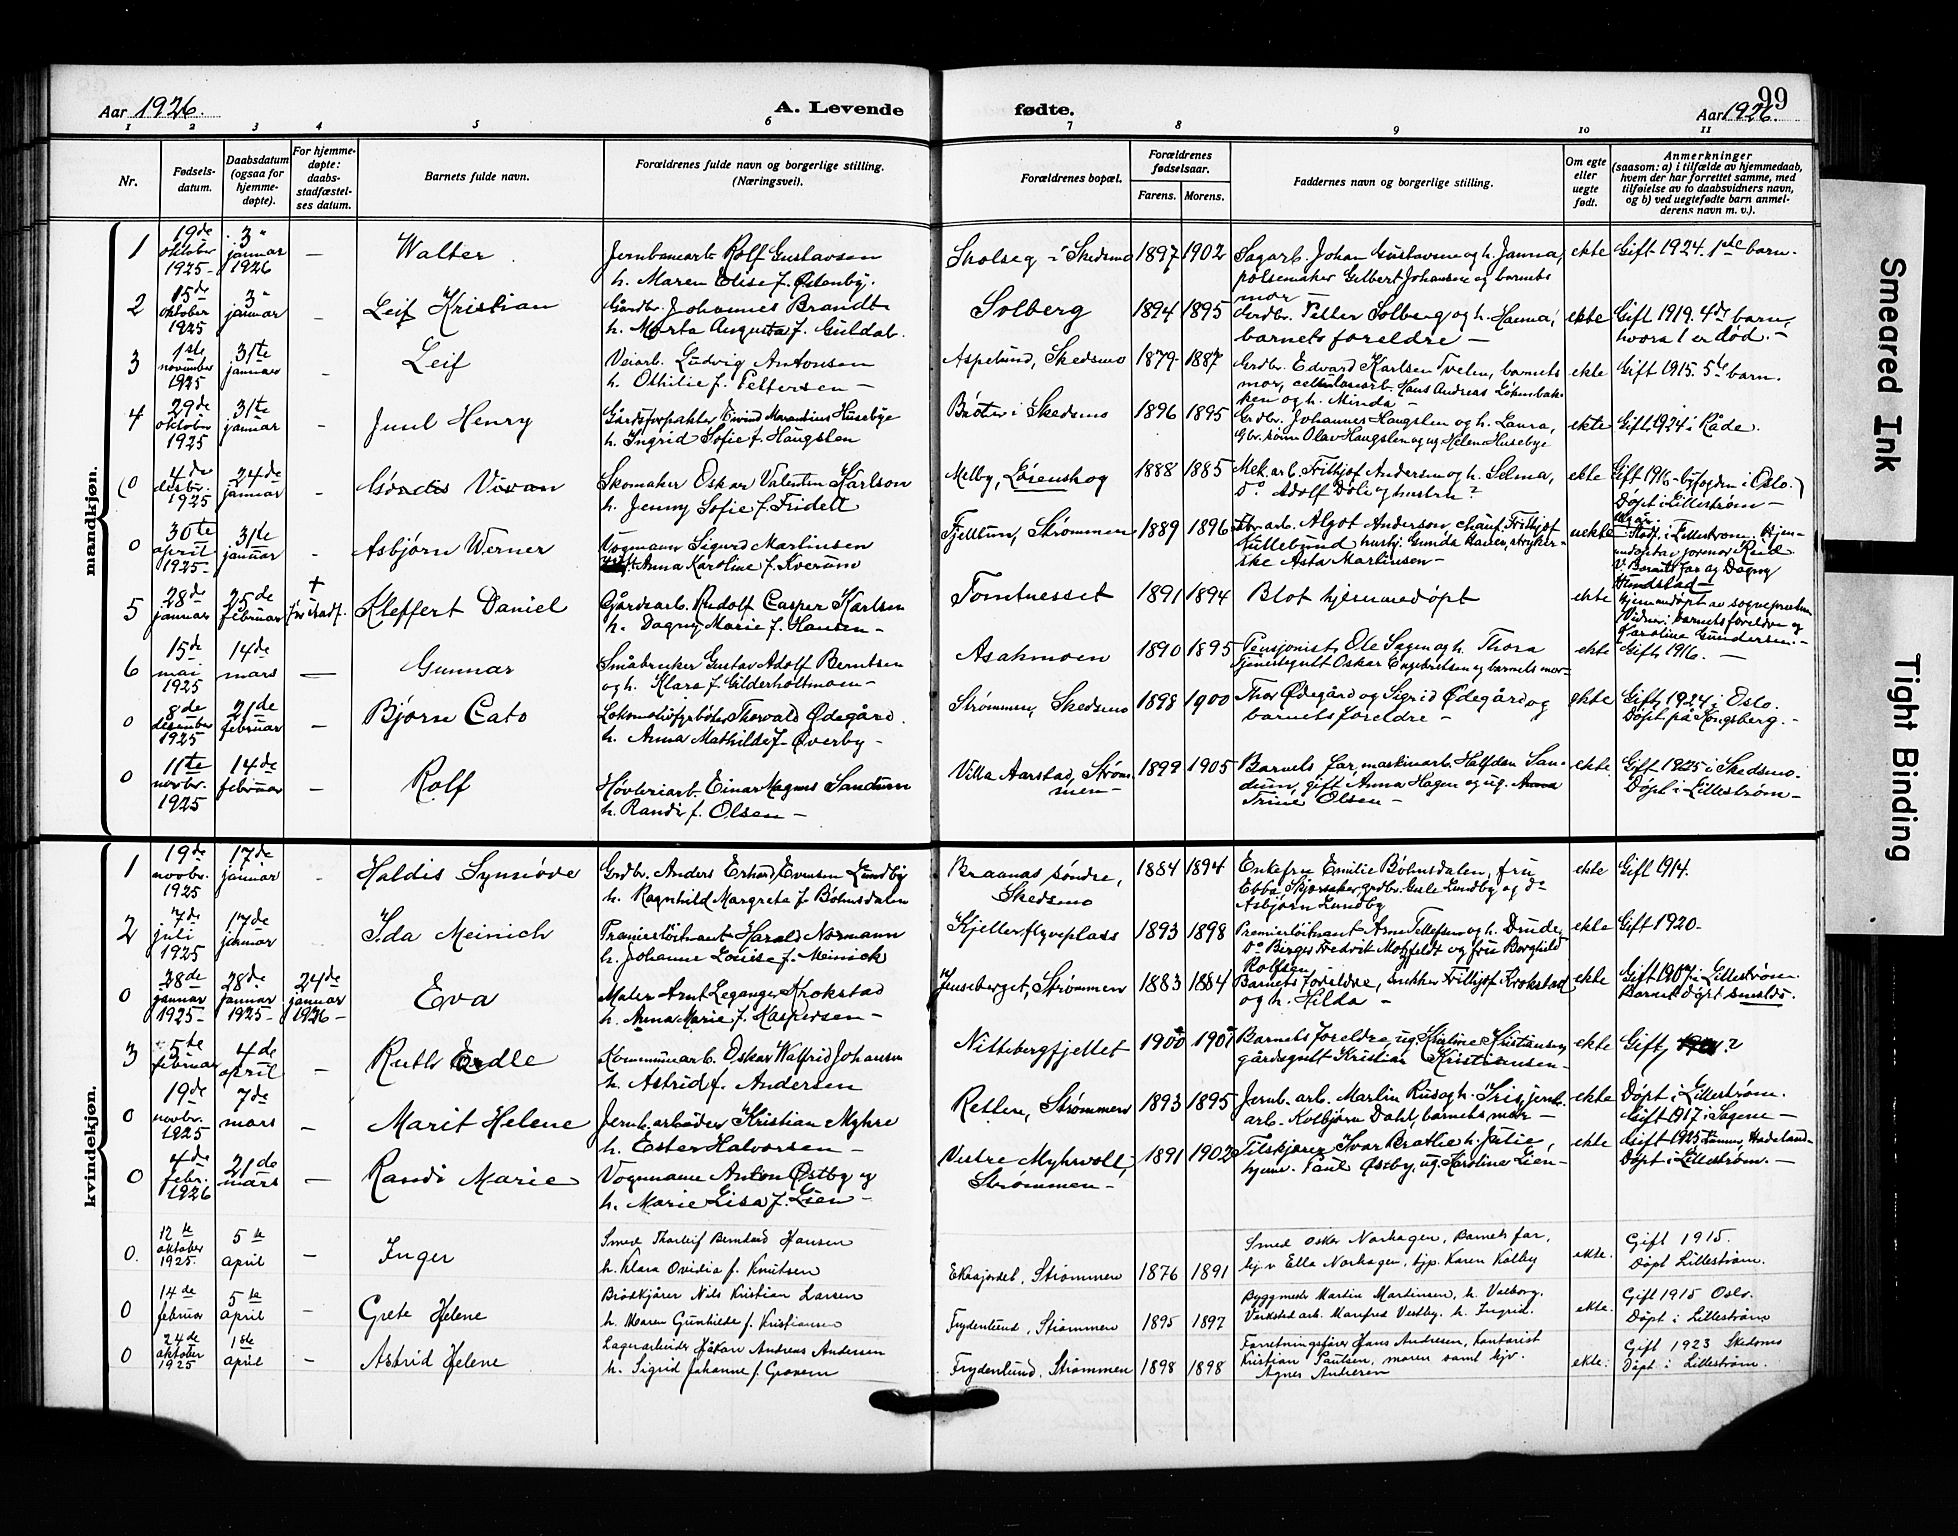 Aar 1926. A. Levende fødte. Aar 1926. 99
1 2 3 4 5 6 7 8 9 10 11
Nr.
Fødsels-
datum.
Daabsdatum
(ogsaa for
hjemme-
døpte).
For hjemme-
døpte:
daabs-
stadfæstel-
ses datum.
Barnets fulde navn.
Forældrenes fulde navn og borgerlige stilling.
(Næringsvei).
Forældrenes bopæl.
Forældrenes
fødselsaar.
Farens. Morens.
Faddernes navn og borgerlige stilling.
Om egte
eller
uegte
født.
Anmerkninger
(saasom: a) i tilfælde av hjemmedaab,
hvem der har forrettet samme, med
tilføielse av to daabsvidners navn,
og b) ved uegtefødte barn anmel-
derens navn m. v.).
mandkjøn.
1
19de
oktober
1925
3"
januar
1926
—
Walter
Jernbanearb. Rolf Gustavsen
h. Maren Elise f. Østenby.
i Skedsmo
1897 1902
Sagarb. Johan Gustavsen og h. Janna,
pølsemaker Gilbert Johansen og barnets
mor —
ekte
Gift 1924. 1ste barn.
2
15de
oktober
1925
3"
januar
—
Leif Kristian
Gårdbr. Johannes Brandt
h. Marta Augusta f. Guldal.
Solberg
1894 1895
Gårdbr. Petter Solberg og h. Hanna,
barnets foreldre —
ekte
Gift 1919. 4de barn,
hvorav 1 er død. —
3
1ste
november
1925
31te
januar
—
Leif
Veiarb. Ludvig Antonsen
h. Othilie f. Pettersen —
Aspelund, Skedsmo
1879 1887
Grdbr. Edvard Karlsen Tveten, barnets
mor, cellulosearb. Hans Andreas Løkenbak-
ken og h. Minda —
ekte
Gift 1915. 5te barn.
4
29de
oktober
1925
31te
januar
—
Juul Henry
Gårdsforpakter Eivind Marentius Husebye
h. Ingrid Sofie f. Haugslen
Brøter i Skedsmo
1896 1895
Grdbr. Johannes Haugslen og h. Laura,
Gbr.sønn Olav Haugslen og ug Helen Husebye
ekte
Gift 1924 i Råde.
(0
4de
desbr.
1925
24de
januar
—
Gordis Vivan
Skomaker Oskar Valentin Karlson
h. Jenny Sofie f. Fridell
Melby, Lørenskog
1888 1885
Mek. arb. Fritthjof Andersen og h. Selma,
do Adolf Døli og hustru?
ekte
Gift 1916 - byfogden i Oslo.)
Døpt i Lillestrøm —
0
30te
april
1925
31te
januar
-
Asbjørn Werner
Vognmann Sigurd Martinsen
Anna Karoline f. Kverum
Fjelltun, Strømmen
1889 1896
arb. Algot Anderson, chauf. Frithjof
Nullelund, hustj. Gunda Hauer, stryker-
ske Asta Martinsen —
uekte
Stadf. i Lillestrøm. Hjem-
medøpt av jormor Ruud
V. Barnets far og Dagny
Hundstad —
5
28de
januar
25de
februar
+
før stadf.
Kleffert Daniel
Gårdsarb. Rudolf Casper Karlsen
h. Dagny Marie f. Hansen —
Tomtnesset
1891 1894
Blot hjemmedøpt
ekte
Hjemmedøpt av sogneprest
Vidner: barnets foreldre og
Karoline Gundersen. —
6
15de
mai
1925
14de
mars
—
Gunnar
Småbruker Gustav Adolf Berntsen
og h. Klara f. Gilderholtmoen —
Asakmoen
1890 1895
Pensjonist Ole Sagen og h. Thora
Tjenestegutt Oskar Engebretsen og barnets mor
ekte
Gift 1916. —
0
8de
desember
1925
21de
februar
—
Bjørn Cato
Lokomotivfyrbøter Thorvald Ødegård.
h. Anna Mathilde f. Øverby —
Strømmen, Skedsmo
1898 1900
Thor Ødegård og Sigrid Ødegård og
barnets foreldre —
ekte
Gift 1924 i Oslo.
Døpt på Kongsberg. —
0
11te
novbr.
1925
14de
februar
—
Rolf
Høvleriarb. Einar Magnus Sandum
h. Randi f. Olsen —
Villa Aarstad, Strøm-
men —
1899 1905
Barnets far, maskinarb. Halfdan San-
dum, gift Anna Hagen og ug. Anna
Trine Olsen —
ekte
Gift 1925 i Skedsmo.
Døpt i Lillestrøm —
kvindekjøn.
1
19de
novbr.
1925
17de
januar
-
Haldis Synnøve
Grdbr. Anders Erhard Evensen Lundby
h. Ragnhild Margrete f. Bøhnsdalen
Braanas søndre,
Skedsmo
1884 1894
Enkefru Emilie Bøhnsdalen, fru
Ebba Skjørsaker, grdbr. Gisle Lundby og do
Asbjørn Lundby
ekte
Gift 1914.
2
7de
juli
1925
17de
januar
Ida Meinich
Premierløitnant Harald Normann
h. Johanne Louise f. Meinich
Kjellerflyveplass
1893 1898
Premierløitnant Arne Tellefsen og h. Drude,
do Birger Fredrik Motzfeldt og fru Borghild
Rolfsen
ekte
Gift 1920.
0
28de
januar
1925
28de
januar
1925
24de
januar
1926
Eva
Maler Arnt Leganger Krokstad
h. Anna Marie f. Kaspersen —
Jenseberget, Strømmen
1883 1884
Barnets foreldre, snekker Frithjof Krokstad
og h. Hilda —
ekte
Gift 1907 i Lillestrøm.
Barnet døpt smstds.
3
5te
februar
4de
april
—
Ruth Erdle
Kommunearb. Oskar Walfrid Johansen
h. Astrid f. Andersen
Nittebergfjellet
1900 1901
Barnets foreldre, ug. Kristine Kristiansen,
gårdsgutt Kristian Kristiansen —
ekte
Gift ?
0
19de
novbr.
1925
7de
mars
—
Marit Helene
Jernb. arbeider Kristian Myhre
h. Ester Halvorsen —
Retten, Strømmen
1893 1895
Jernb. arb. Martin Rus og h. Iris, jernb.
arb. Kolbjørn Dahl, barnets mor —
ekte
Døpt i Lillestrøm.
Gift 1917 i Sagene —
0
4de
febr.
1926
21de
mars
—
Randi Marie
Vognmann Anton Østby og
h. Marie Lisa f. Lien —
Vestre Myhrvoll,
Strømmen —
1891 1902
Tilskjærer Ivar Bratlie h. Julie,
hjem. Paul Østby, ug. Karoline Lien —
ekte
Gift 1925 Lunner, Hadeland —
Døpt i Lillestrøm. —
0.
12te
oktober
1925.
5te
april
—
Inger
Smed Thorleif Bernhard Hansen
h. Klara Ovidia f. Knutsen
Ekrajordet, Strømmen
1876 1891
Smed Oskar Norhagen, Barnets far,
hj. v Ella Norhagen, tjp. Karen Kolby
ekte.
Gift 1915.
Døpt Lillestrøm.
0
14de
februar
5te
april
—
Grete Helene
Brødkjører Nils Kristian Larsen
h. Maren Gunhilde f. Kristiansen
Frydenlund, Strømmen
1895 1897
Byggmester Martin Martinsen, h. Valborg,
Verksted arb. Manfred Vestby. h. Ingrid.
ekte.
Gift 1915 Oslo.
Døpt i Lillestrøm
0
24de
oktober
1925
1ste
april
—
Astrid Helene
Lagerarbeider Håkon Andreas Andersen
h. Sigrid Johanne f. Graven
Frydenlund, Strømmen
1898 1898
Forretningsfører Hans Andresen, kontorist
Kristian Paulsen, moren samt hjv.
Agnes Andresen
ekte.
Gift 1923 Skedsmo
Døpt i Lillestrøm.
Smeared Ink
Tight Binding